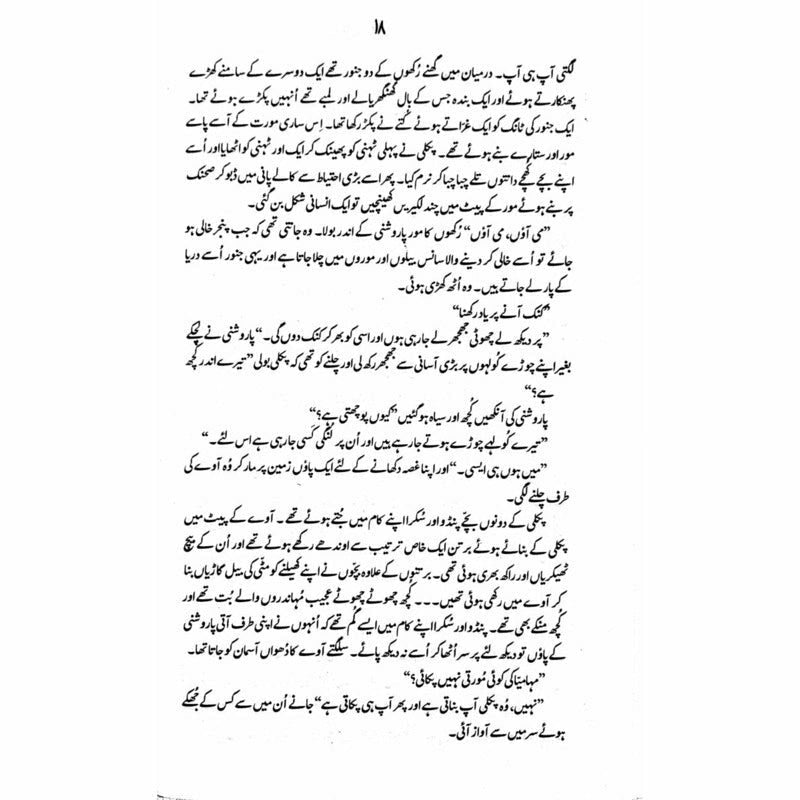 ۱۸
لگتی آپ ہی آپ۔ درمیان میں گھنے رُکھوں کے دو جنور تھے ایک دوسرے کے سامنے کھڑے
پھنکارتے ہوئے اور ایک بندہ جس کے بال گھنگھریالے اور لمبے تھے اُنہیں پکڑے ہوئے تھا۔
ایک جنور کی ٹانگ کو ایک غرّاتے ہوئے کُتے نے پکڑ رکھا تھا۔ اِس ساری مورت کے آسے پاسے
مور اور ستارے بنے ہوئے تھے۔ پکلی نے پہلی ٹہنی کو پھینک کر ایک اور ٹہنی کو اٹھایا اور اُسے
اپنے بچے کھچے دانتوں تلے چبا چبا کر نرم کیا۔ پھر اسے بڑی احتیاط سے کالے پانی میں ڈبو کر صحنک
پر بنے ہوئے مور کے پیٹ میں چند لکیریں کھینچیں تو ایک انسانی شکل بن گئی۔
”می آؤں، می آؤں“ رُکھوں کا مور پاروشنی کے اندر بولا۔ وہ جانتی تھی کہ جب پنجر خالی ہو
جائے تو اُسے خالی کر دینے والا سانس بیلوں اور موروں میں چلا جاتا ہے اور یہی جنور اُسے دریا
کے پار لے جاتے ہیں۔ وہ اُٹھ کھڑی ہوئی۔
”کنک آنے پر یاد رکھنا“
”پر دیکھ لے چھوٹی جھجھر لے جا رہی ہوں اور اسی کو بھر کر کنک دوں گی۔“ پاروشنی نے لچکے
بغیر اپنے چوڑے کولہوں پر بڑی آسانی سے جھجھر رکھ لی اور چلنے کو تھی کہ پکلی بولی ”تیرے اندر کُچھ
ہے؟“
پاروشنی کی آنکھیں کُچھ اور سیاہ ہو گئیں ”کیوں پوچھتی ہے؟“
”تیرے کولہے چوڑے ہوتے جا رہے ہیں اور اُن پر لُنگی کسی جا رہی ہے اس لئے۔“
”میں ہوں ہی ایسی۔“ اور اپنا غصہ دکھانے کے لئے ایک پاؤں زمین پر مار کر وُہ آوے کی
طرف چلنے لگی۔
پکلی کے دونوں بچّے پنڈو اور سُکرا اپنے کام میں جُتے ہوئے تھے۔ آوے کے پیٹ میں
پکلی کے بنائے ہوئے برتن ایک خاص ترتیب سے اوندھے رکھے ہوئے تھے اور اُن کے بیچ
ٹھیکریاں اور راکھ بھری ہوئی تھی۔ برتنوں کے علاوہ بچّوں نے اپنے کھیلنے کو مٹّی کی بیل گاڑیاں بنا
کر آوے میں رکھی ہوئی تھیں۔۔۔ کُچھ چھوٹے چھوٹے عجیب مُہاندروں والے بُت تھے اور
کُچھ منکے بھی تھے۔ پنڈو اور سُکرا اپنے کام میں ایسے گُم تھے کہ اُنہوں نے اپنی طرف آتی پاروشنی
کے پاؤں تو دیکھ لئے پر سر اُٹھا کر اُسے نہ دیکھ پائے۔ سلگتے آوے کا دُھواں آسمان کو جاتا تھا۔
”مہامیّا کی کوئی مُورتی نہیں پکائی؟“
”نہیں، وُہ پکلی آپ بناتی ہے اور پھر آپ ہی پکاتی ہے“ جانے اُن میں سے کس کے جُھکے
ہوئے سر میں سے آواز آئی۔